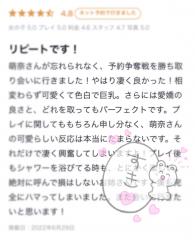 4.8 ネット予約で行きました
女の子 5.0 プレイ 5.0 料金 4.6 スタッフ 4.7 写真 5.0
リピートです!
萌奈さんが忘れられなく、予約争奪戦を勝ち取
り会いに行きました!やはり凄く良かった!相
変わらず可愛くて色白で巨乳。さらには愛嬌の
良さと、どれを取ってもパーフェクトです。プ
レイに関してももちろん申し分なく、萌奈さん
の可愛らしい反応は本当にたまらないです。そ
れだけで凄く興奮してしまいます
プレイ後
もシャワーを浴びてる時も
絶対に呼んで損はしないお
全にハマってしまいました。また
たいと思います!
掲載日:2022年6月29日